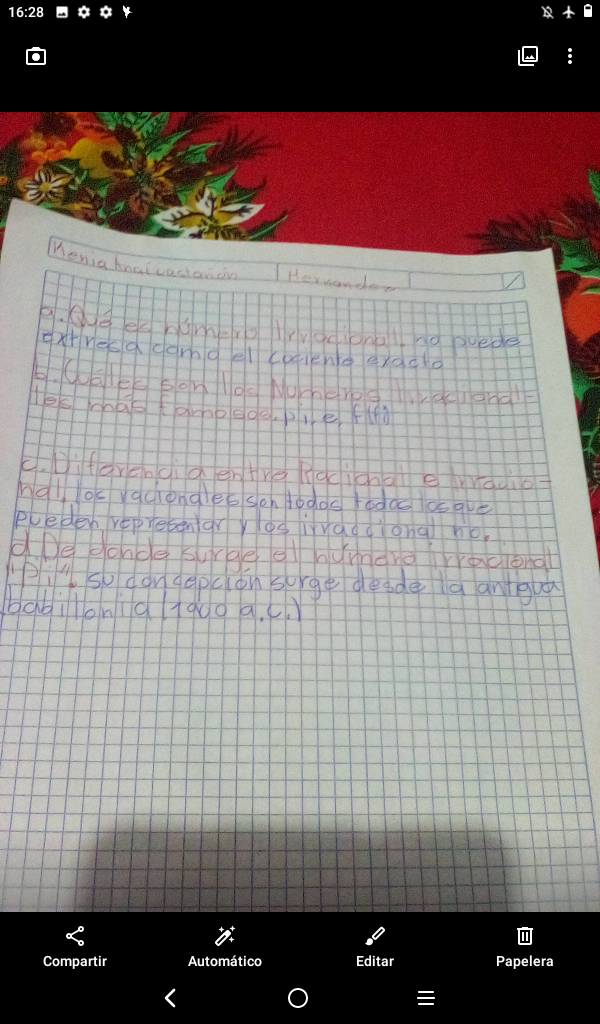 16:28
Kenia Anai Hernandez
a. Qué es número Irracional, no puede
extresa como el cociente exacto
b. Cuáles son los Números Irracional-
les más famosos. pi, e, f(fi)
c. Diferencia entre Racional e Irracio-
nal, los racionales son todos todos los que
pueden representar y los irraccional no.
d. De donde surge el número irracional
"Pi". su concepción surge desde la antigua
babillonia (1900 a.c.)
Compartir Automático Editar Papelera